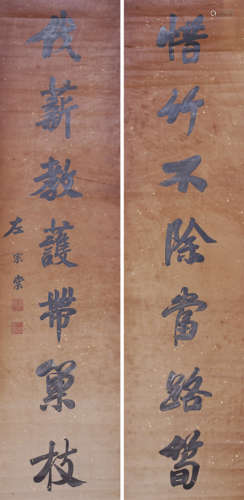 惜竹不除當路筍
伐薪教護帶巢枝
左宗棠